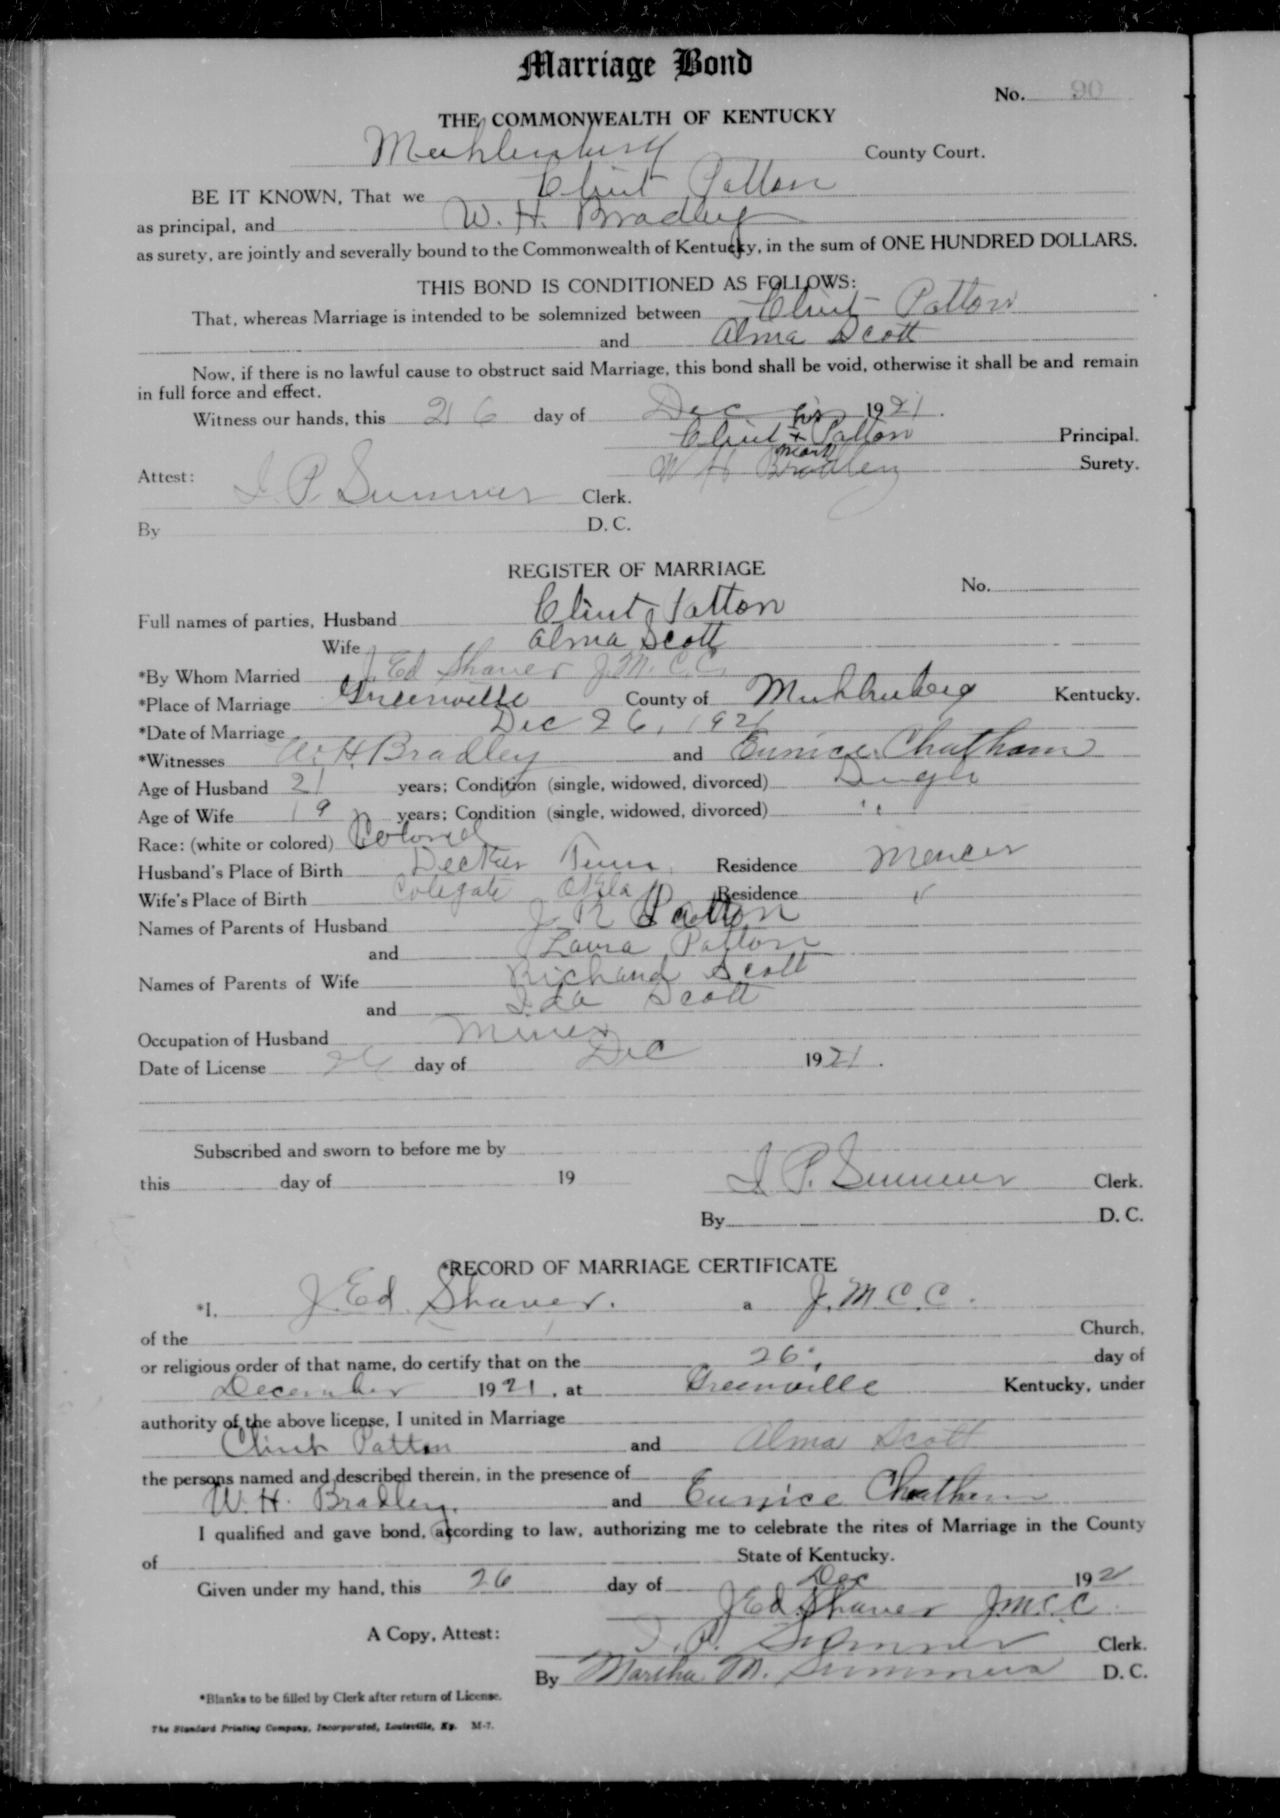 Marriage Bond
No. 90
THE COMMONWEALTH OF KENTUCKY
Muhlenburg County Court.
BE IT KNOWN, That we Clint Patton
as principal, and W. H. Bradley
as surety, are jointly and severally bound to the Commonwealth of Kentucky, in the sum of ONE HUNDRED DOLLARS.
THIS BOND IS CONDITIONED AS FOLLOWS:
That, whereas Marriage is intended to be solemnized between Clint Patton
and Alma Scott
Now, if there is no lawful cause to obstruct said Marriage, this bond shall be void, otherwise it shall be and remain
in full force and effect.
Witness our hands, this 26 day of Dec 1921.
his
Clint x Patton Principal.
mark
W H Bradley Surety.
Attest: I P. Summer Clerk.
By D. C.
REGISTER OF MARRIAGE
No.
Full names of parties, Husband Clint Patton
Wife Alma Scott
*By Whom Married J. Ed Shaver J. M. C. C.
*Place of Marriage Greenville County of Muhlenberg Kentucky.
*Date of Marriage Dec 26, 1921
*Witnesses W. H. Bradley and Eunice Chatham
Age of Husband 21 years; Condition (single, widowed, divorced) Single
Age of Wife 19 years; Condition (single, widowed, divorced) "
Race: (white or colored) Colored
Husband's Place of Birth Decker Tenn. Residence Mercer
Wife's Place of Birth Colegate Okla Residence "
Names of Parents of Husband J R Patton
and Laura Patton
Names of Parents of Wife Richard Scott
and Ida Scott
Occupation of Husband Miner
Date of License 26 day of Dec 1921.
Subscribed and sworn to before me by
this day of 19 I P. Summer Clerk.
By D. C.
*RECORD OF MARRIAGE CERTIFICATE
*I, J. Ed Shaver. a J. M. C. C.
of the Church,
or religious order of that name, do certify that on the 26, day of
December 1921, at Greenville Kentucky, under
authority of the above license, I united in Marriage
Clint Patton and Alma Scott
the persons named and described therein, in the presence of
W. H. Bradley. and Eunice Chatham
I qualified and gave bond, according to law, authorizing me to celebrate the rites of Marriage in the County
of State of Kentucky.
Given under my hand, this 26 day of Dec 192
J Ed Shaver J. M. C. C.
A Copy, Attest: I. P. Summer Clerk.
By Martha M. Summers D. C.
*Blanks to be filled by Clerk after return of License.
The Standard Printing Company, Incorporated, Louisville, Ky. M-7.